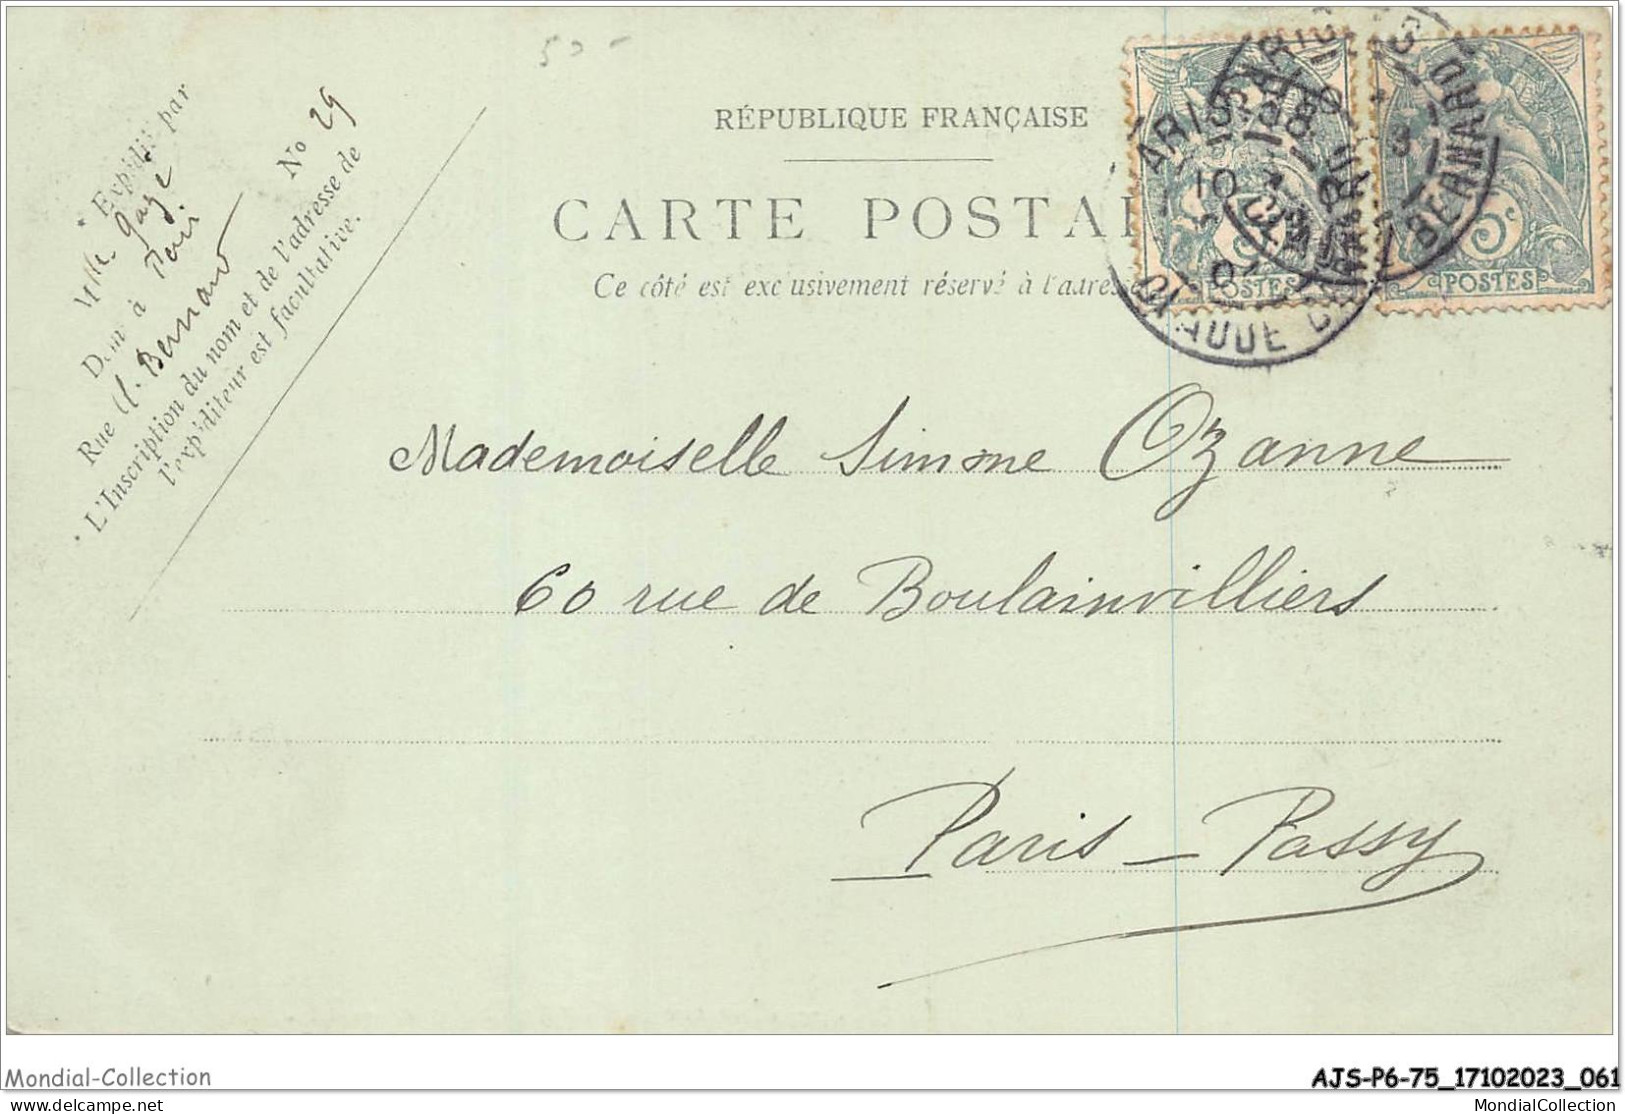 50-
RÉPUBLIQUE FRANÇAISE
CARTE POSTAL
Ce côté est exclusivement réservé à l'adresse
Expédié par
Mlle Gaze
Dem. à Paris
Rue Cl. Bernard No 29
L'Inscription du nom et de l'adresse de
l'expéditeur est facultative.
POSTES
5c POSTES
CLAUDE BERNARD
BERNARD
Mademoiselle Simone Ozanne
60 rue de Boulainvilliers
Paris-Passy
Mondial-Collection
AJS-P6-75_17102023_061
delcampe.net
MondialCollection